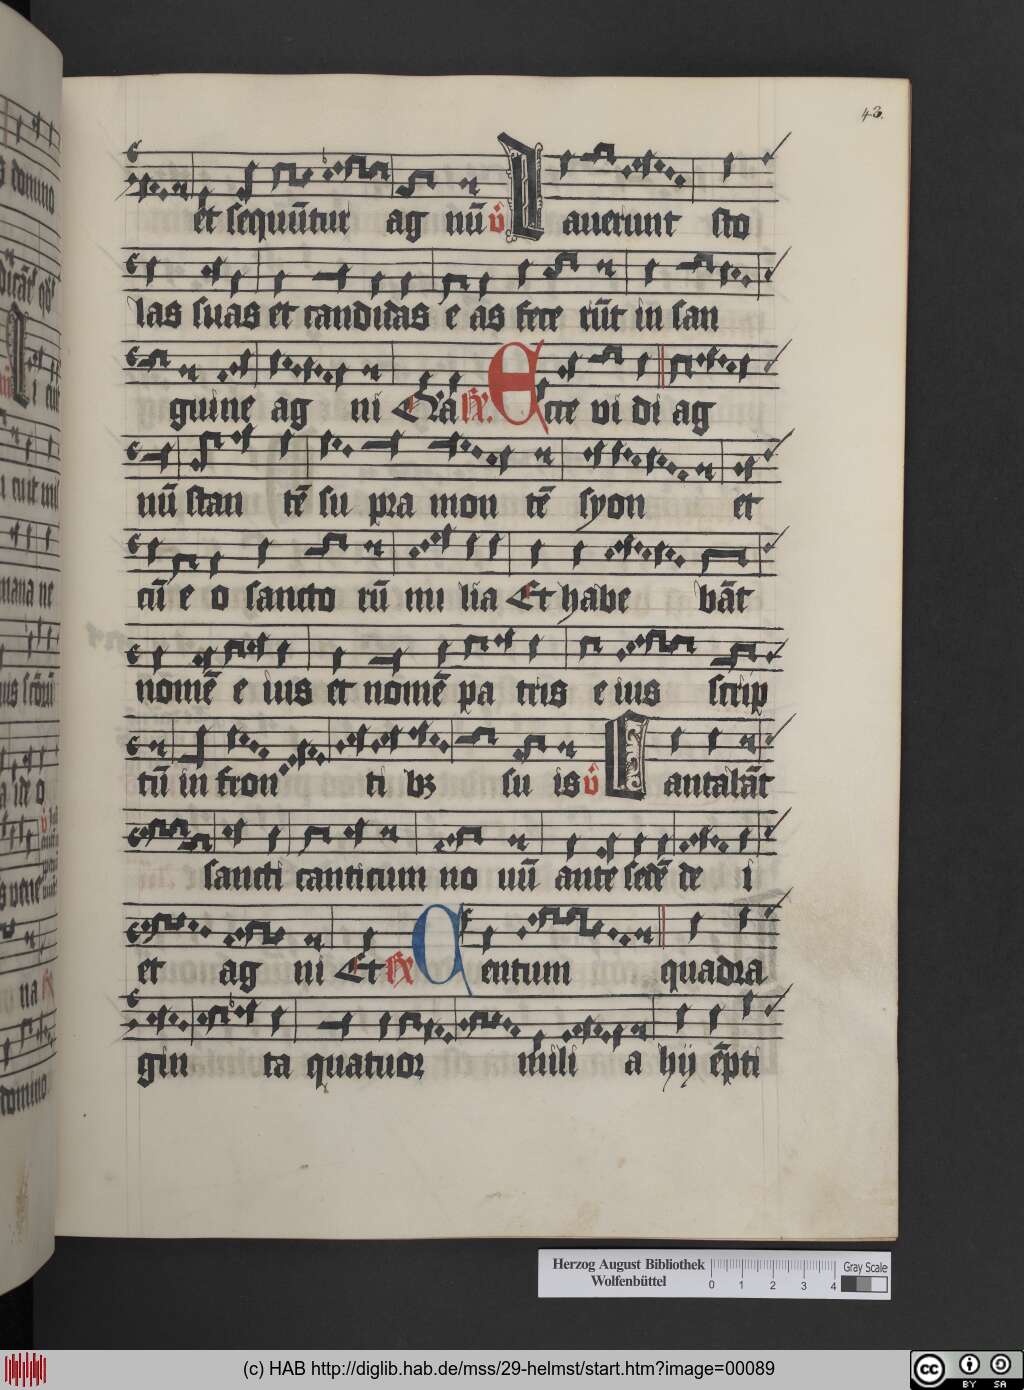 43.
et sequūtur ag nū v̄ Lauerunt sto
las suas et candidas e as fece rūt in san
guine ag ni Et a ℟. Ecce vi di ag
nū stan tē su pra mon tē syon et
cū e o sancto rū mi lia Et habe bāt
nomē e ius et nomē pa tris e ius scrip
tū in fron ti bꝫ su is v̄ Cantabāt
sancti canticum no uū ante sedē de i
et ag ni Et ℟ Centum quadra
gin ta quatuor mili a hij ēpti
Herzog August Bibliothek
Wolfenbüttel
0 1 2 3 4
Gray Scale
(c) HAB http://diglib.hab.de/mss/29-helmst/start.htm?image=00089
cc BY SA